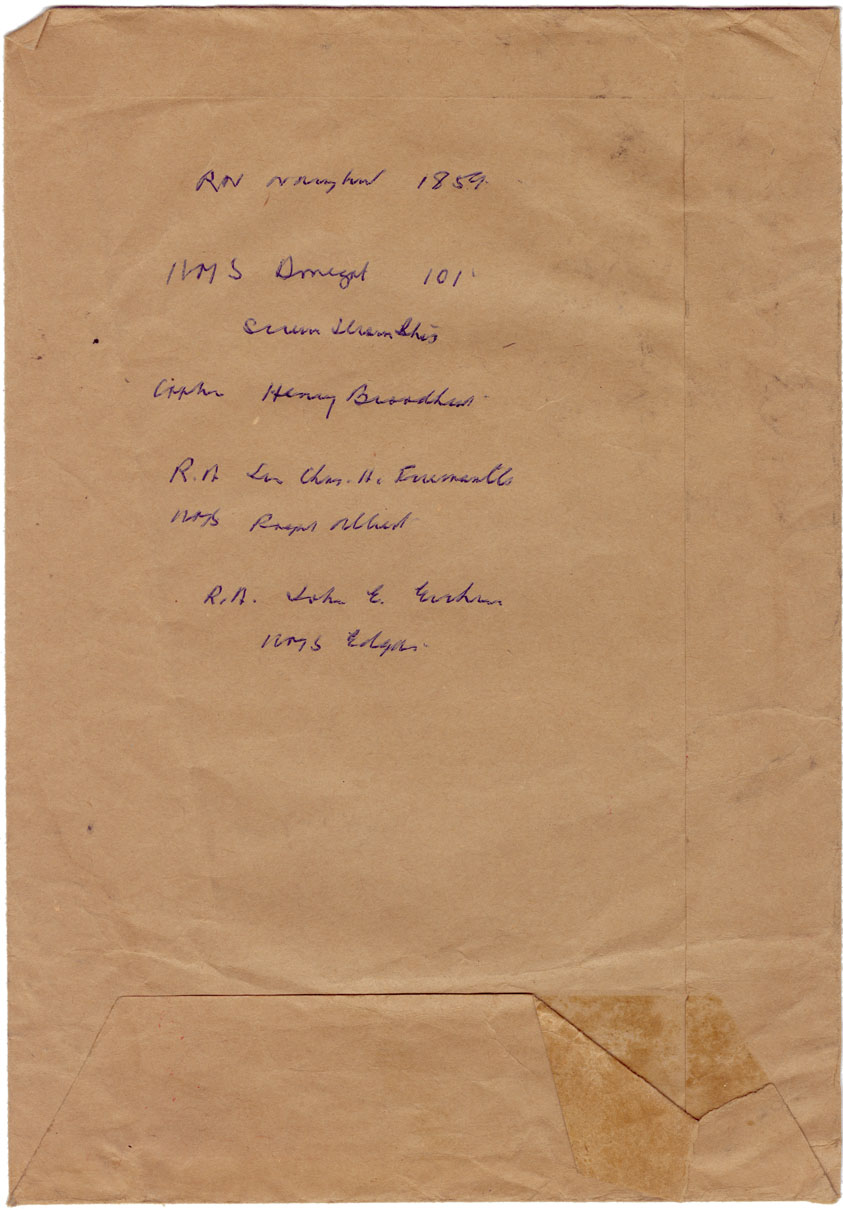 RN Navy List 1859.
HMS Donegal 101
Screw Steam Ship
Captn Henry Broadhead
R.A Sir Chas. H. Freemantle
HMS Royal Albert
R.A. John E. Erskine
HMS Edgar.